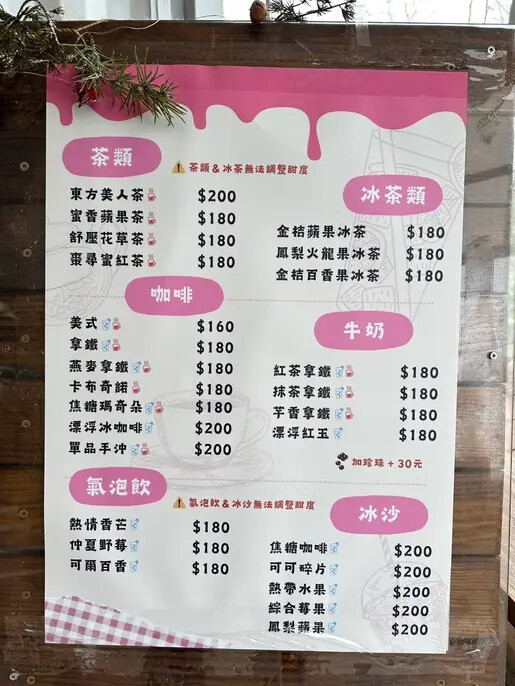 茶類
⚠ 茶類 & 冰茶無法調整甜度
東方美人茶 $200
蜜香蘋果茶 $180
舒壓花草茶 $180
棗尋蜜紅茶 $180
冰茶類
金桔蘋果冰茶 $180
鳳梨火龍果冰茶 $180
金桔百香果冰茶 $180
咖啡
美式 $160
拿鐵 $180
燕麥拿鐵 $180
卡布奇諾 $180
焦糖瑪奇朵 $180
漂浮冰咖啡 $200
單品手沖 $200
牛奶
紅茶拿鐵 $180
抹茶拿鐵 $180
芋香拿鐵 $180
漂浮紅玉 $180
加珍珠+30元
氣泡飲
⚠ 氣泡飲 & 冰沙無法調整甜度
熱情香芒 $180
仲夏野莓 $180
可爾百香 $180
冰沙
焦糖咖啡 $200
可可碎片 $200
熱帶水果 $200
綜合莓果 $200
鳳梨蘋果 $200